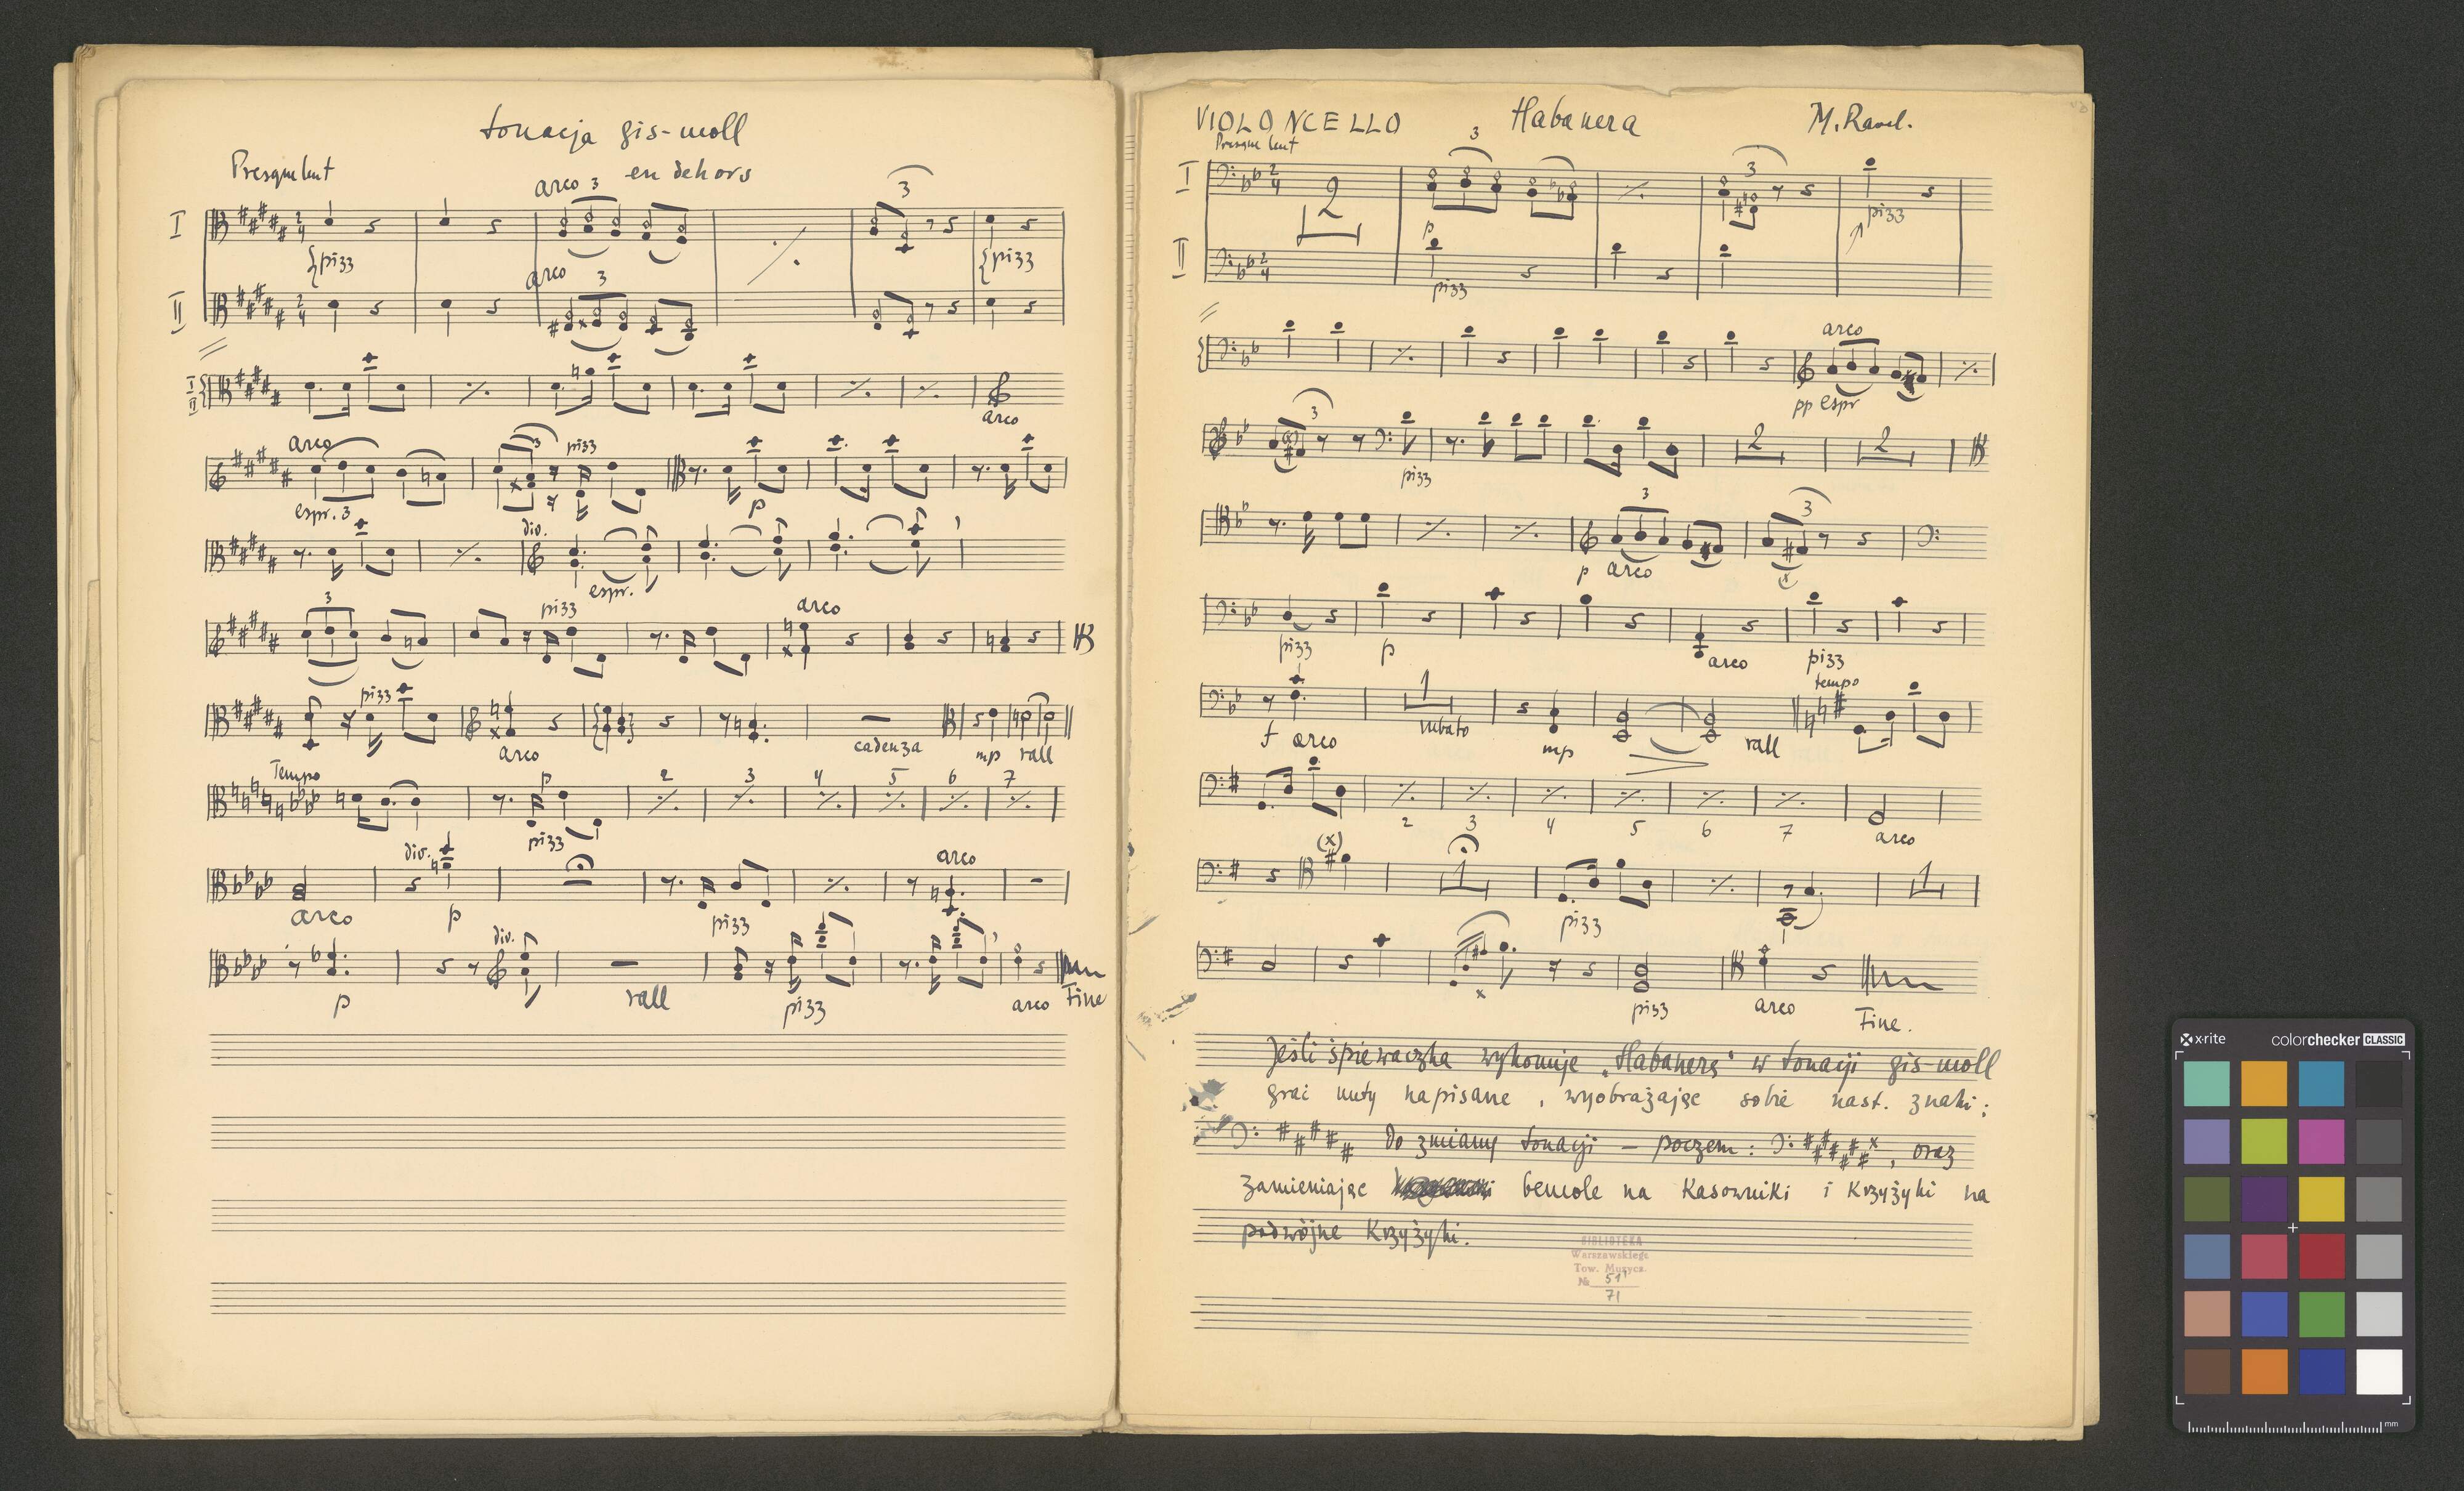 tonacja gis-moll
Presque lent
en dehors
arco 3
3
I
{pizz
{pizz
arco 3
II
I
II
arco
arco
3
pizz
espr. 3
p
div.
espr.
3
pizz
arco
pizz
arco
cadenza
mp
rall
Tempo
p
2
3
4
5
6
7
pizz
div.
arco
arco
p
pizz
div.
p
rall
pizz
arco
Fine
VIOLONCELLO
Habanera
M. Ravel.
Presque lent
3
I
2
3
pizz
p
II
pizz
arco
pp espr
3
2
2
pizz
3
3
p arco
pizz
p
arco
pizz
tempo
1
f arco
rubato
mp
rall
2
3
4
5
6
7
arco
(x)
1
1
pizz
pizz
arco
Fine.
Jeśli śpiewaczka wykonuje „Habanerę" w tonacji gis-moll
grać nuty napisane, wyobrażając sobie nast. znaki:
do zmiany tonacji – poczem: , oraz
zamieniając bemole na Kasowniki i Krzyżyki na
podwójne Krzyżyki.
BIBLIOTEKA
Warszawskiego
Tow. Muzycz.
№ 511
71
x-rite
colorchecker CLASSIC
mm